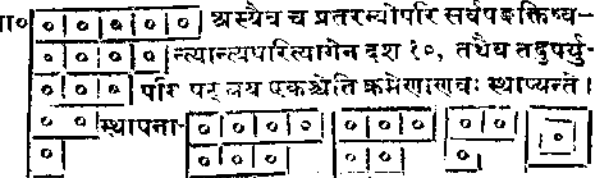 गा० ० ० ० ० ० अस्यैव च प्रतरस्योपरि सर्वपङ्क्तिष्व-
० ० ० ० न्त्यान्त्यपरित्यागेन दश १०, तथैव तदुपर्यु-
० ० ० परि षट् त्रय एकश्चेति क्रमेणाणवः स्थाप्यन्ते ।
० ० स्थापना- ० ० ० ० ० ० ० ० ० ०
० ० ० ० ० ० ०